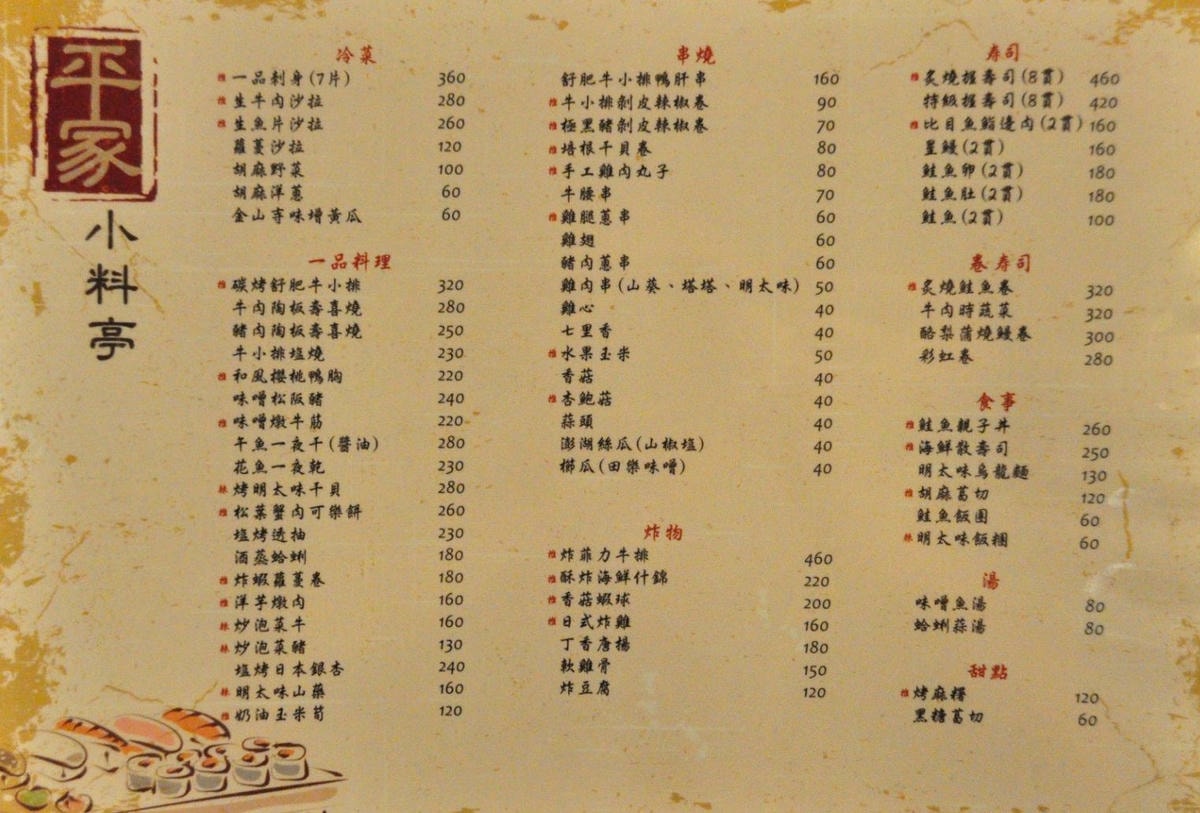 平家
小料亭
冷菜
推 一品刺身(7片) 360
推 生牛肉沙拉 280
推 生魚片沙拉 260
蘿蔓沙拉 120
胡麻野菜 100
胡麻洋蔥 60
金山寺味增黃瓜 60
一品料理
推 碳烤舒肥牛小排 320
牛肉陶板壽喜燒 280
豬肉陶板壽喜燒 250
牛小排塩燒 230
推 和風櫻桃鴨胸 220
味噌松阪豬 240
推 味噌燉牛筋 220
午魚一夜干(醬油) 280
花魚一夜乾 230
辣 烤明太味干貝 280
推 松葉蟹肉可樂餅 260
塩烤透抽 230
酒蒸蛤蜊 180
推 炸蝦蘿蔓卷 180
推 洋芋燉肉 160
辣 炒泡菜牛 160
辣 炒泡菜豬 130
塩烤日本銀杏 240
辣 明太味山藥 160
推 奶油玉米筍 120
串燒
舒肥牛小排鴨肝串 160
推 牛小排剝皮辣椒卷 90
推 極黑豬剝皮辣椒卷 70
推 培根干貝卷 80
推 手工雞肉丸子 80
牛腰串 70
推 雞腿蔥串 60
雞翅 60
豬肉蔥串 60
雞肉串(山葵、塔塔、明太味) 50
雞心 40
七里香 40
推 水果玉米 50
香菇 40
推 杏鮑菇 40
蒜頭 40
澎湖絲瓜(山椒塩) 40
櫛瓜(田樂味噌) 40
炸物
推 炸菲力牛排 460
推 酥炸海鮮什錦 220
推 香菇蝦球 200
推 日式炸雞 160
丁香唐揚 180
軟雞骨 150
炸豆腐 120
寿司
推 炙燒握壽司(8貫) 460
特級握壽司(8貫) 420
推 比目魚鮨邊肉(2貫) 160
星鰻(2貫) 160
鮭魚卵(2貫) 180
鮭魚肚(2貫) 180
鮭魚(2貫) 100
卷寿司
推 炙燒鮭魚卷 320
牛肉時蔬菜 320
酪梨蒲燒鰻卷 300
彩虹卷 280
食事
推 鮭魚親子丼 260
推 海鮮散壽司 250
明太味烏龍麵 130
推 胡麻葛切 120
鮭魚飯團 60
辣 明太味飯糰 60
湯
味噌魚湯 80
蛤蜊蒜湯 80
甜點
推 烤麻糬 120
黑糖葛切 60